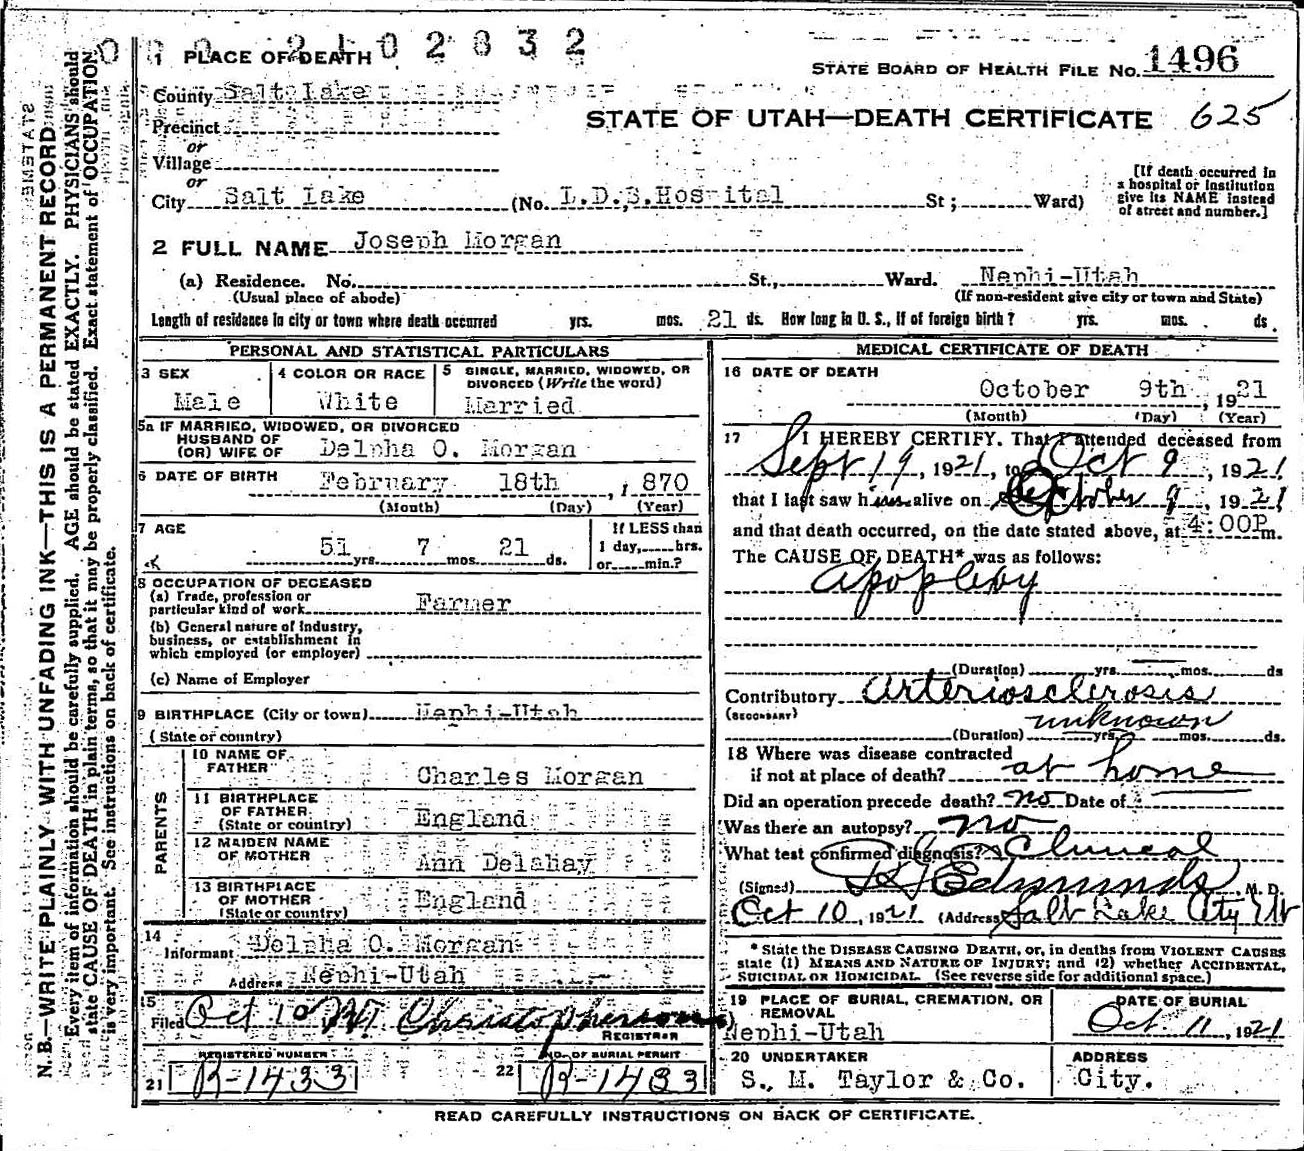 2102832
1 PLACE OF DEATH
STATE BOARD OF HEALTH FILE NO. 1496
County Salt Lake
STATE OF UTAH—DEATH CERTIFICATE 625
Precinct
or
Village
or
City Salt Lake (No. L.D.S.Hospital St; Ward)
[If death occurred in a hospital or institution give its NAME instead of street and number.]
2 FULL NAME Joseph Morgan
(a) Residence. No. St., Ward. Nephi-Utah
(Usual place of abode) (If non-resident give city or town and State)
Length of residence in city or town where death occurred yrs. mos. 21 ds. How long in U. S., if of foreign birth? yrs. mos. ds.
PERSONAL AND STATISTICAL PARTICULARS
3 SEX
Male
4 COLOR OR RACE
White
5 SINGLE, MARRIED, WIDOWED, OR DIVORCED (Write the word)
Married
5a IF MARRIED, WIDOWED, OR DIVORCED
HUSBAND OF
(OR) WIFE OF Delpha O. Morgan
6 DATE OF BIRTH February 18th, 1870
(Month) (Day) (Year)
7 AGE
51 yrs. 7 mos. 21 ds.
If LESS than
1 day, hrs.
or min.?
8 OCCUPATION OF DECEASED
(a) Trade, profession or
particular kind of work Farmer
(b) General nature of industry,
business, or establishment in
which employed (or employer)
(c) Name of Employer
9 BIRTHPLACE (City or town) Nephi-Utah
(State or country)
PARENTS
10 NAME OF
FATHER Charles Morgan
11 BIRTHPLACE
OF FATHER England
(State or country)
12 MAIDEN NAME
OF MOTHER Ann Delahay
13 BIRTHPLACE
OF MOTHER England
(State or country)
14
Informant Delpha O. Morgan
Address Nephi-Utah
15
Filed Oct 10 Christopherson
REGISTRAR
REGISTERED NUMBER
21 R-1433
NO. OF BURIAL PERMIT
22 R-1433
MEDICAL CERTIFICATE OF DEATH
16 DATE OF DEATH
October 9th, 1921
(Month) (Day) (Year)
17 I HEREBY CERTIFY. That I attended deceased from
Sept 19, 1921, to Oct 9, 1921
that I last saw him alive on October 9, 1921
and that death occurred, on the date stated above, at 4:00P m.
The CAUSE OF DEATH* was as follows:
apoplexy
(Duration) yrs. mos. ds
Contributory arteriosclerosis
(SECONDARY)
unknown
(Duration) yrs. mos. ds.
18 Where was disease contracted
if not at place of death? at home
Did an operation precede death? no Date of
Was there an autopsy? no
What test confirmed diagnosis? Clinical
(Signed) Edmunds, M. D.
Oct 10, 1921 (Address Salt Lake City Ut
* State the DISEASE CAUSING DEATH, or, in deaths from VIOLENT CAUSES
state (1) MEANS AND NATURE OF INJURY; and (2) whether ACCIDENTAL,
SUICIDAL OR HOMICIDAL. (See reverse side for additional space.)
19 PLACE OF BURIAL, CREMATION, OR
REMOVAL
Nephi-Utah
DATE OF BURIAL
Oct. 11, 1921
20 UNDERTAKER
S. M. Taylor & Co.
ADDRESS
City.
READ CAREFULLY INSTRUCTIONS ON BACK OF CERTIFICATE.
N. B.—WRITE PLAINLY WITH UNFADING INK—THIS IS A PERMANENT RECORD
Every item of information should be carefully supplied. AGE should be stated EXACTLY. PHYSICIANS should
state CAUSE OF DEATH in plain terms, so that it may be properly classified. Exact statement of OCCUPATION
is very important. See instructions on back of certificate.